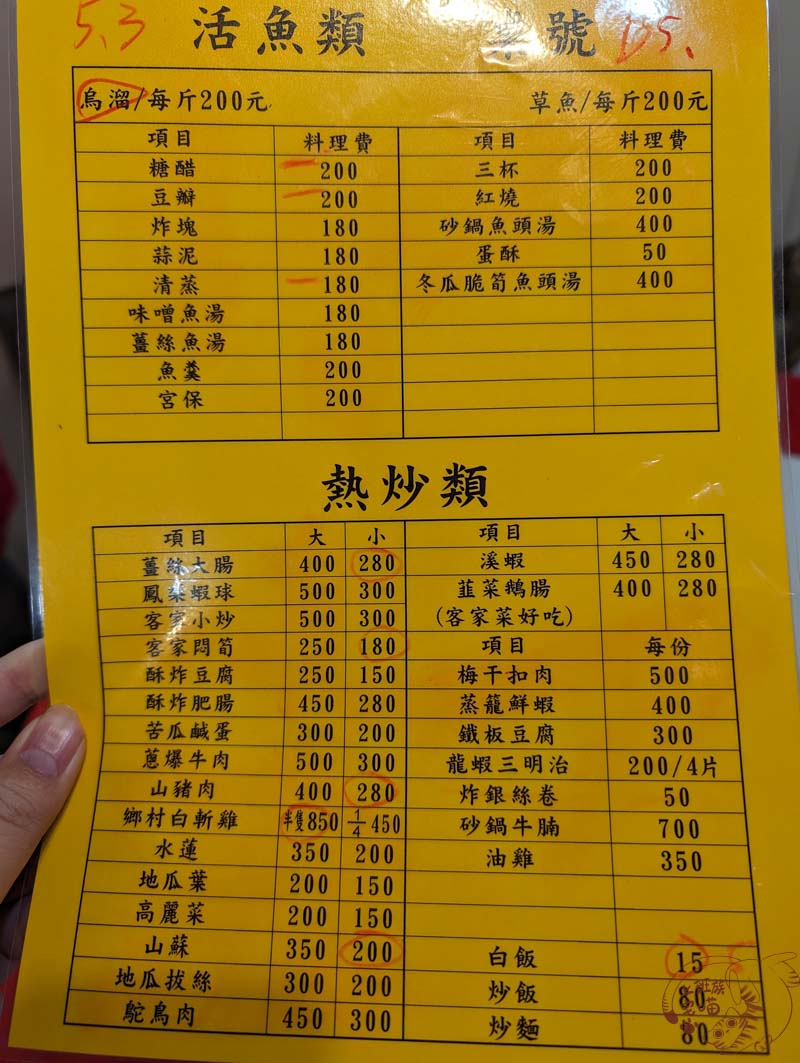 5.3 活魚類 桌號 D5.
烏溜/每斤200元 草魚/每斤200元
項目 料理費 項目 料理費
糖醋 200 三杯 200
豆瓣 200 紅燒 200
炸塊 180 砂鍋魚頭湯 400
蒜泥 180 蛋酥 50
清蒸 180 冬瓜脆筍魚頭湯 400
味噌魚湯 180
薑絲魚湯 180
魚羹 200
宮保 200
熱炒類
項目 大 小 項目 大 小
薑絲大腸 400 280 溪蝦 450 280
鳳梨蝦球 500 300 韭菜鵝腸 400 280
客家小炒 500 300 (客家菜好吃)
客家悶筍 250 180 項目 每份
酥炸豆腐 250 150 梅干扣肉 500
酥炸肥腸 450 280 蒸籠鮮蝦 400
苦瓜鹹蛋 300 200 鐵板豆腐 300
蔥爆牛肉 500 300 龍蝦三明治 200/4片
山豬肉 400 280 炸銀絲卷 50
鄉村白斬雞 半隻850 1/4 450 砂鍋牛腩 700
水蓮 350 200 油雞 350
地瓜葉 200 150
高麗菜 200 150
山蘇 350 200 白飯 15
地瓜拔絲 300 200 炒飯 80
鴕鳥肉 450 300 炒麵 80